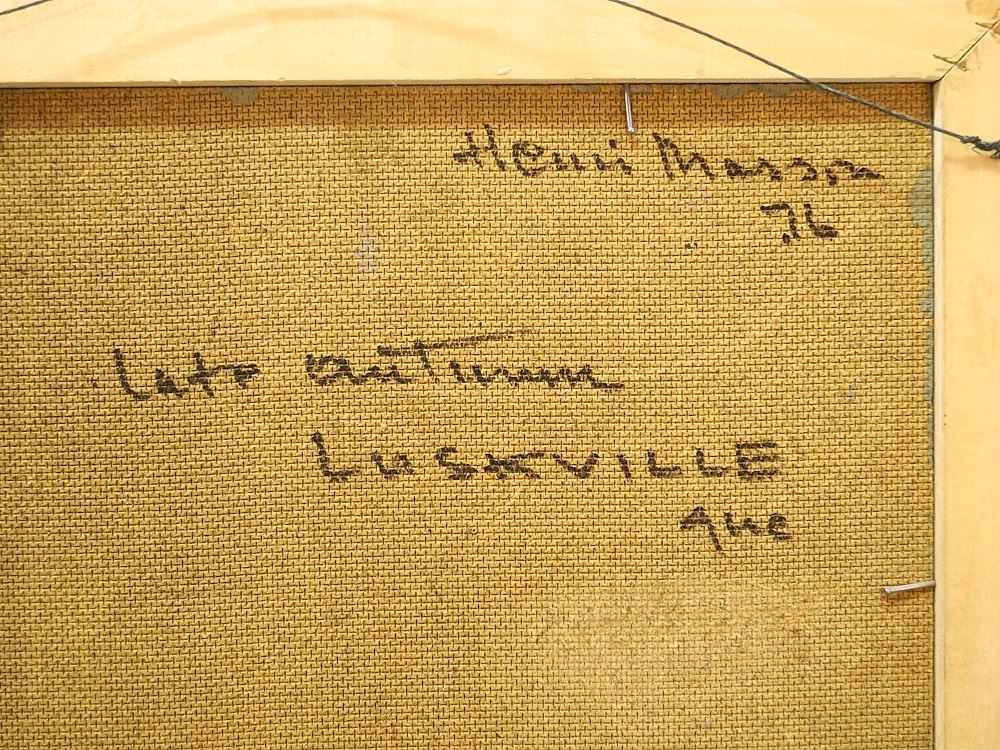 Henri Masson
.76
late autumn
LUSKVILLE
que